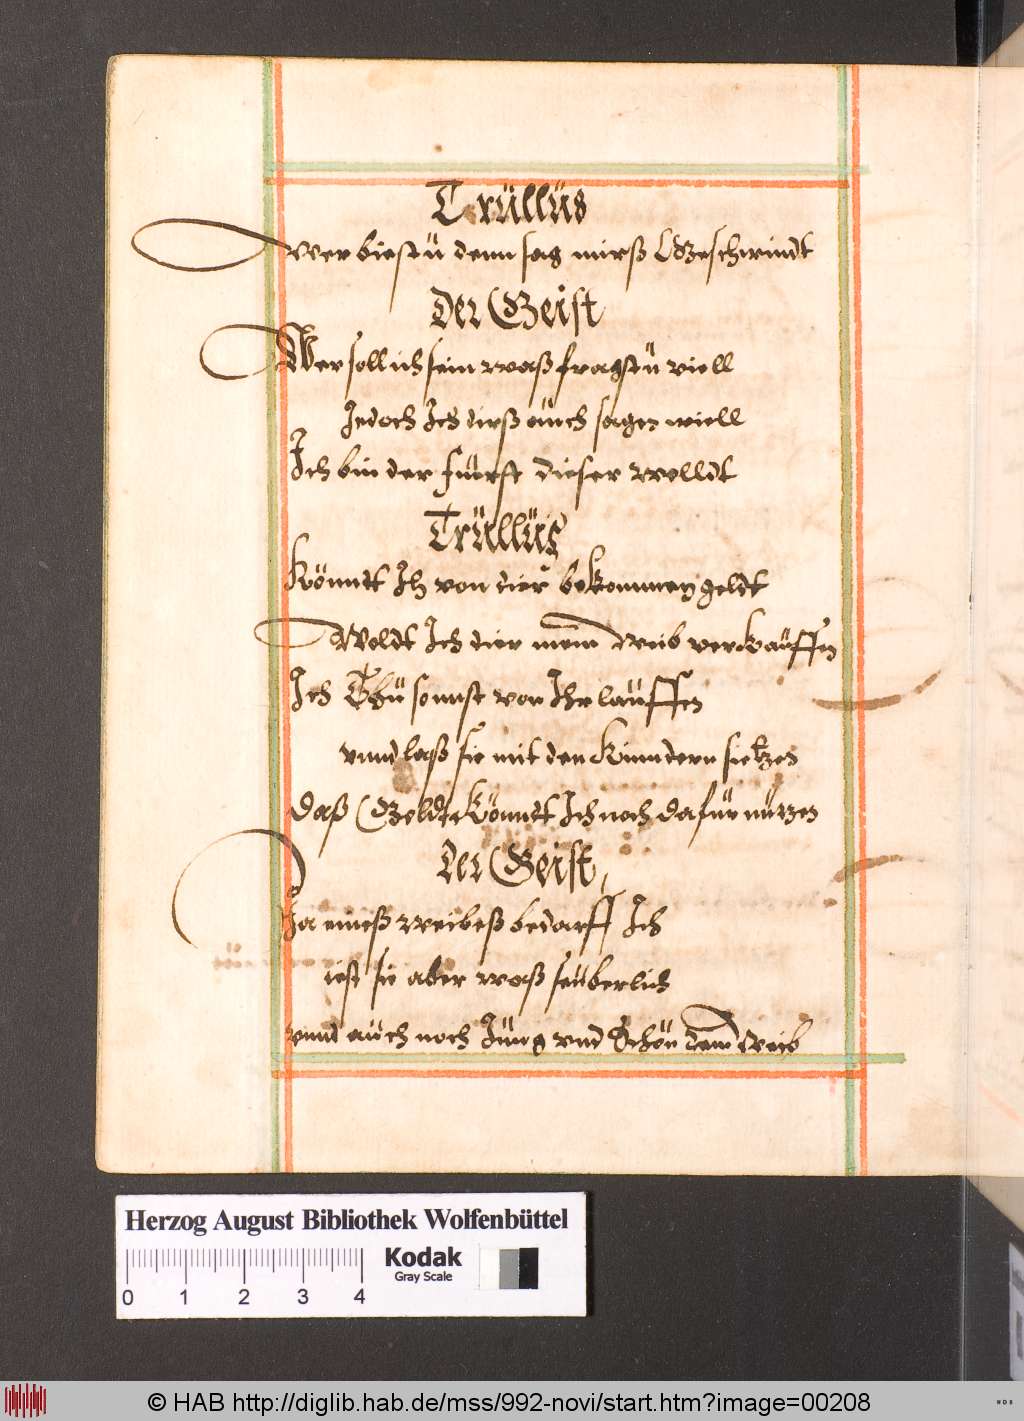 Trüllüs
Wer biestü denn sag mirß Geschwindt
Der Geist
Wer soll ich sein waß fragstü viell
Jedoch Ich dirß auch sagen wiell
Ich bin der fürst dieser welldt
Trüllüs
Könndt Ich von dier bekommen geldt
Woldt Ich dier mein weib verkauffen
Ich Thü sonnst von Ihr lauffen
vnnd laß sie mit den Kinndern sietzen
Daß Geldt Könndt Ich noch dafür nützen
Der Geist,
Ja eineß weibeß bedarff Ich
iest sie aber waß seüberlich
vnnd auch noch Jüng vnd Schön dein weib
Herzog August Bibliothek Wolfenbüttel
Kodak
Gray Scale
0 1 2 3 4
© HAB http://diglib.hab.de/mss/992-novi/start.htm?image=00208